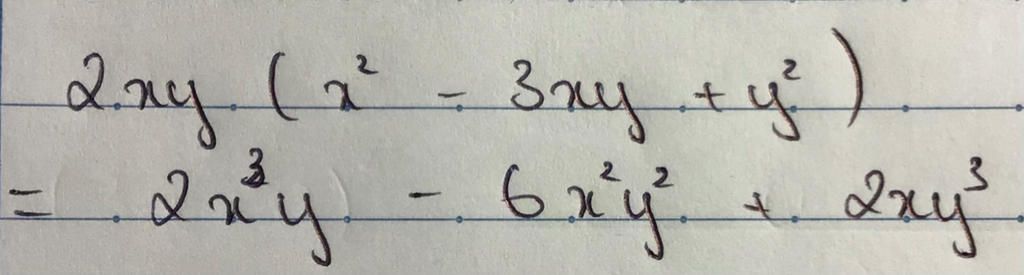 2xy (x² - 3xy + y²)
= 2x³y - 6x²y² + 2xy³